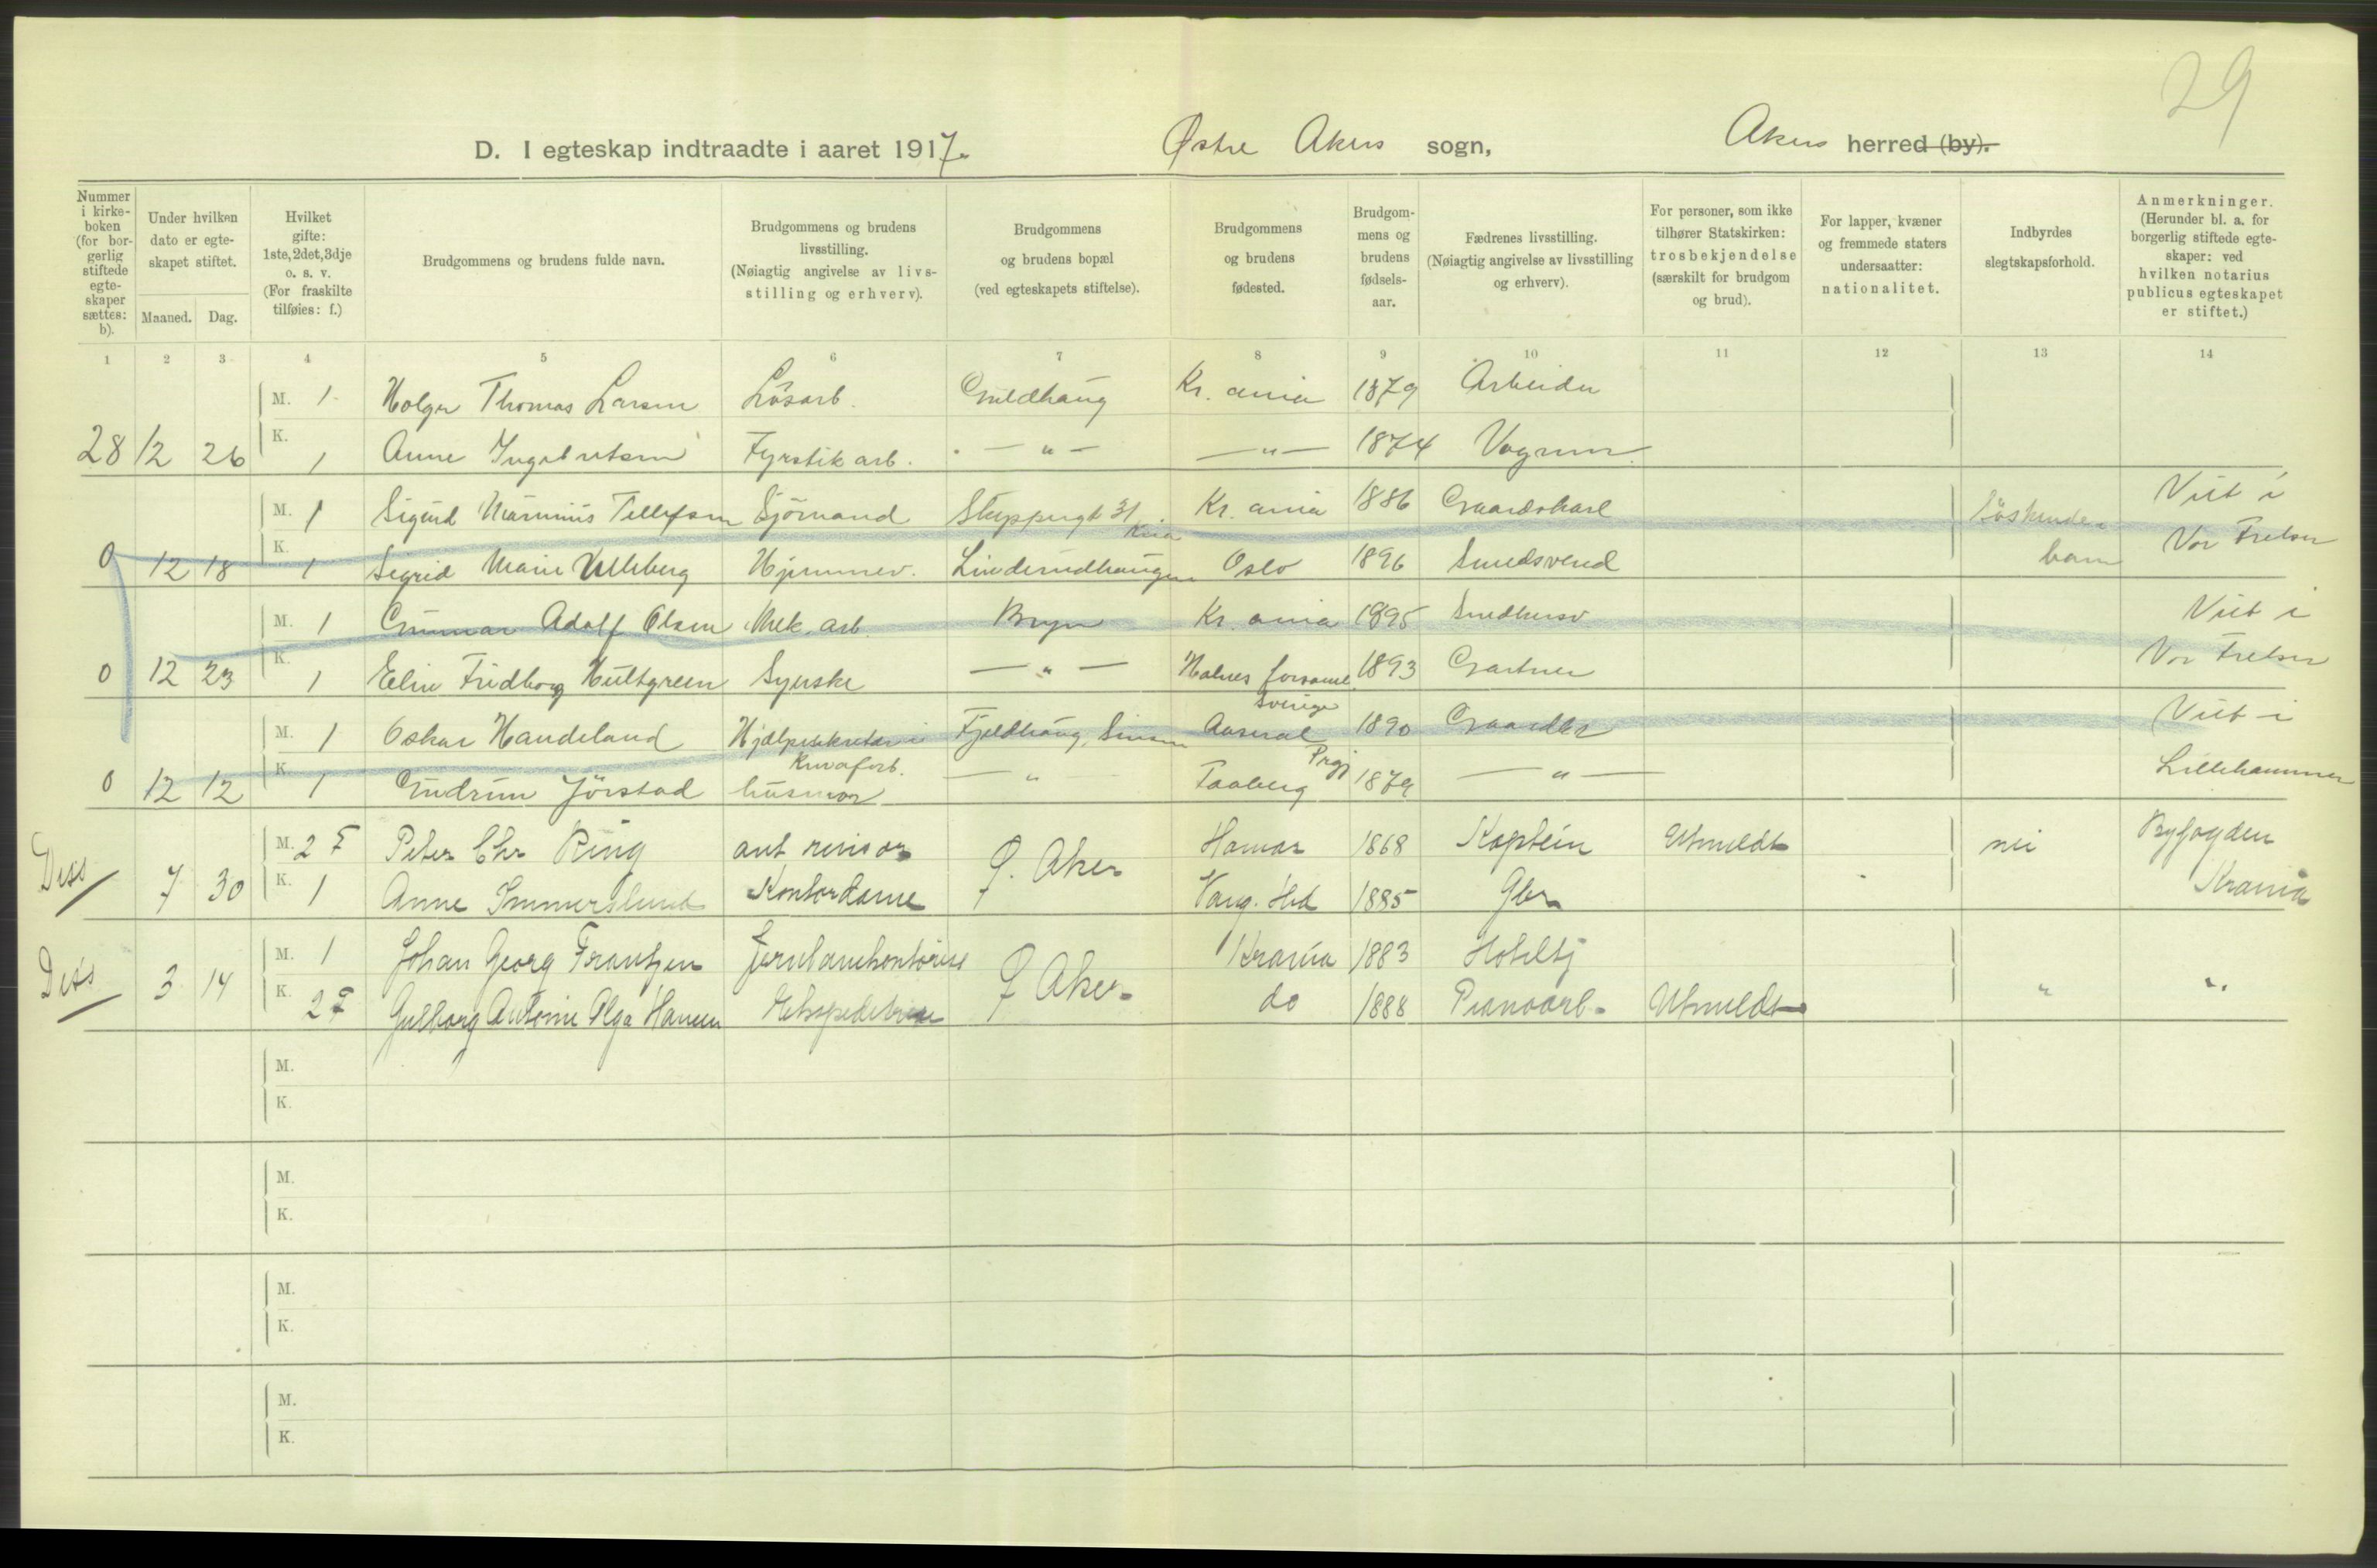 29
D. I egteskap indtraadte i aaret 1917. Østre Akers sogn, Akers herred (by).
Nummer i kirkeboken (for borgerlig stiftede egteskaper sættes: b).
Under hvilken dato er egteskapet stiftet.
Maaned. Dag.
Hvilket gifte: 1ste, 2det, 3dje o. s. v. (For fraskilte tilføies: f.)
Brudgommens og brudens fulde navn.
Brudgommens og brudens livsstilling. (Nøiagtig angivelse av livsstilling og erhverv).
Brudgommens og brudens bopæl (ved egteskapets stiftelse).
Brudgommens og brudens fødested.
Brudgommens og brudens fødselsaar.
Fædrenes livsstilling. (Nøiagtig angivelse av livsstilling og erhverv).
For personer, som ikke tilhører Statskirken: trosbekjendelse (særskilt for brudgom og brud).
For lapper, kvæner og fremmede staters undersaatter: nationalitet.
Indbyrdes slegtskapsforhold.
Anmerkninger. (Herunder bl. a. for borgerlig stiftede egteskaper: ved hvilken notarius publicus egteskapet er stiftet.)
1 2 3 4 5 6 7 8 9 10 11 12 13 14
M. 1 Holger Thomas Larsen Løsarb. Guldhaug Kr.ania 1879 Arbeider
28 12 26 K. 1 Anne Ingebretsen Fyrstikarb. — " — — " — 1874 Vognm.
M. 1 Sigurd Marinius Tellefsen Sjømand Steppergt 31 Kria Kr.ania 1886 Gaardskarl Søskendebarn Viet i
0 12 18 K. 1 Sigrid Marie Ulleberg Hjemmev. Linderudhaugen Oslo 1896 Smedsvend Vor Frelser
M. 1 Gunnar Adolf Olsen Mek. arb. Bryn Kr.ania 1895 Viet i
0 12 23 K. 1 Elin Fridborg Hultgreen Syerske — " — Halnes forsaml. Sverige 1893 Gartner Vor Frelser
M. 1 Oskar Handeland Hjælpesekretær i Fjeldhaug, Sinsen Aaseral 1890 Gaardbr Viet i
0 12 12 K. 1 Gudrun Jørstad husmor — " — Faaberg Prgj 1879 — " — Lillehammer
Diss 7 30 M. 2 F Peter Chr Ring ant revisor Ø. Aker Hamar 1868 Kaptein Utmeldt nei Byfogden
K. 1 Anne Immerslund Kontordame Vang. Hed 1885 Gbr Krania
Diss 3 14 M. 1 Johan Georg Frantzen Jernbanekontorist Ø Aker Krania 1883 Hotelbj
K. 2 F Gulborg Antonie Olga Hansen Ekspeditrise do 1888 Pianoarb. Utmeldt " "
M.
K.
M.
K.
M.
K.
M.
K.